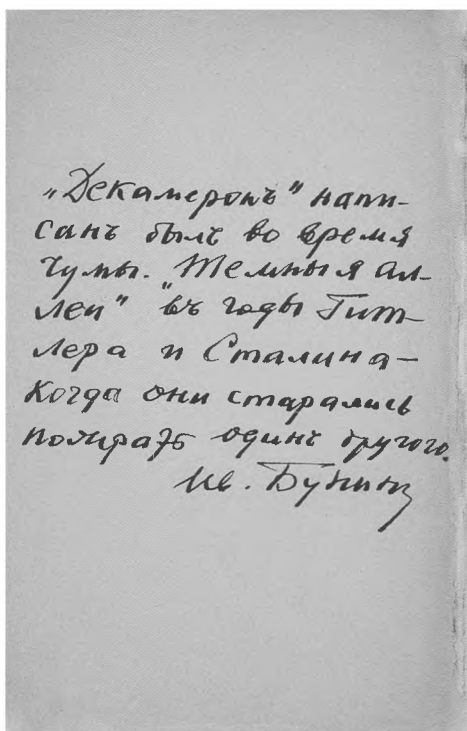 „Декамеронъ" напи-
санъ былъ во время
чумы. „Темныя ал-
леи" въ годы Гит-
лера и Сталина —
когда они старались
пожрать одинъ другого.
Ив. Бунинъ